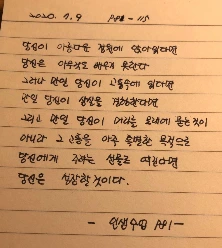 2020. 1. 9
당신이 아름다운 정원에 앉아있다면
당신은 아무것도 배우지 못한다
그러나 만일 당신이 고통속에 있다면
만일 당신이 상실을 경험한다면
그리고 만일 당신이 머리를 모래에 묻는 것이
아니라 그 고통을 아주 특별한 목적으로
당신에게 주어지는 선물로 여긴다면
당신은 성장할 것이다.
- 인생수업